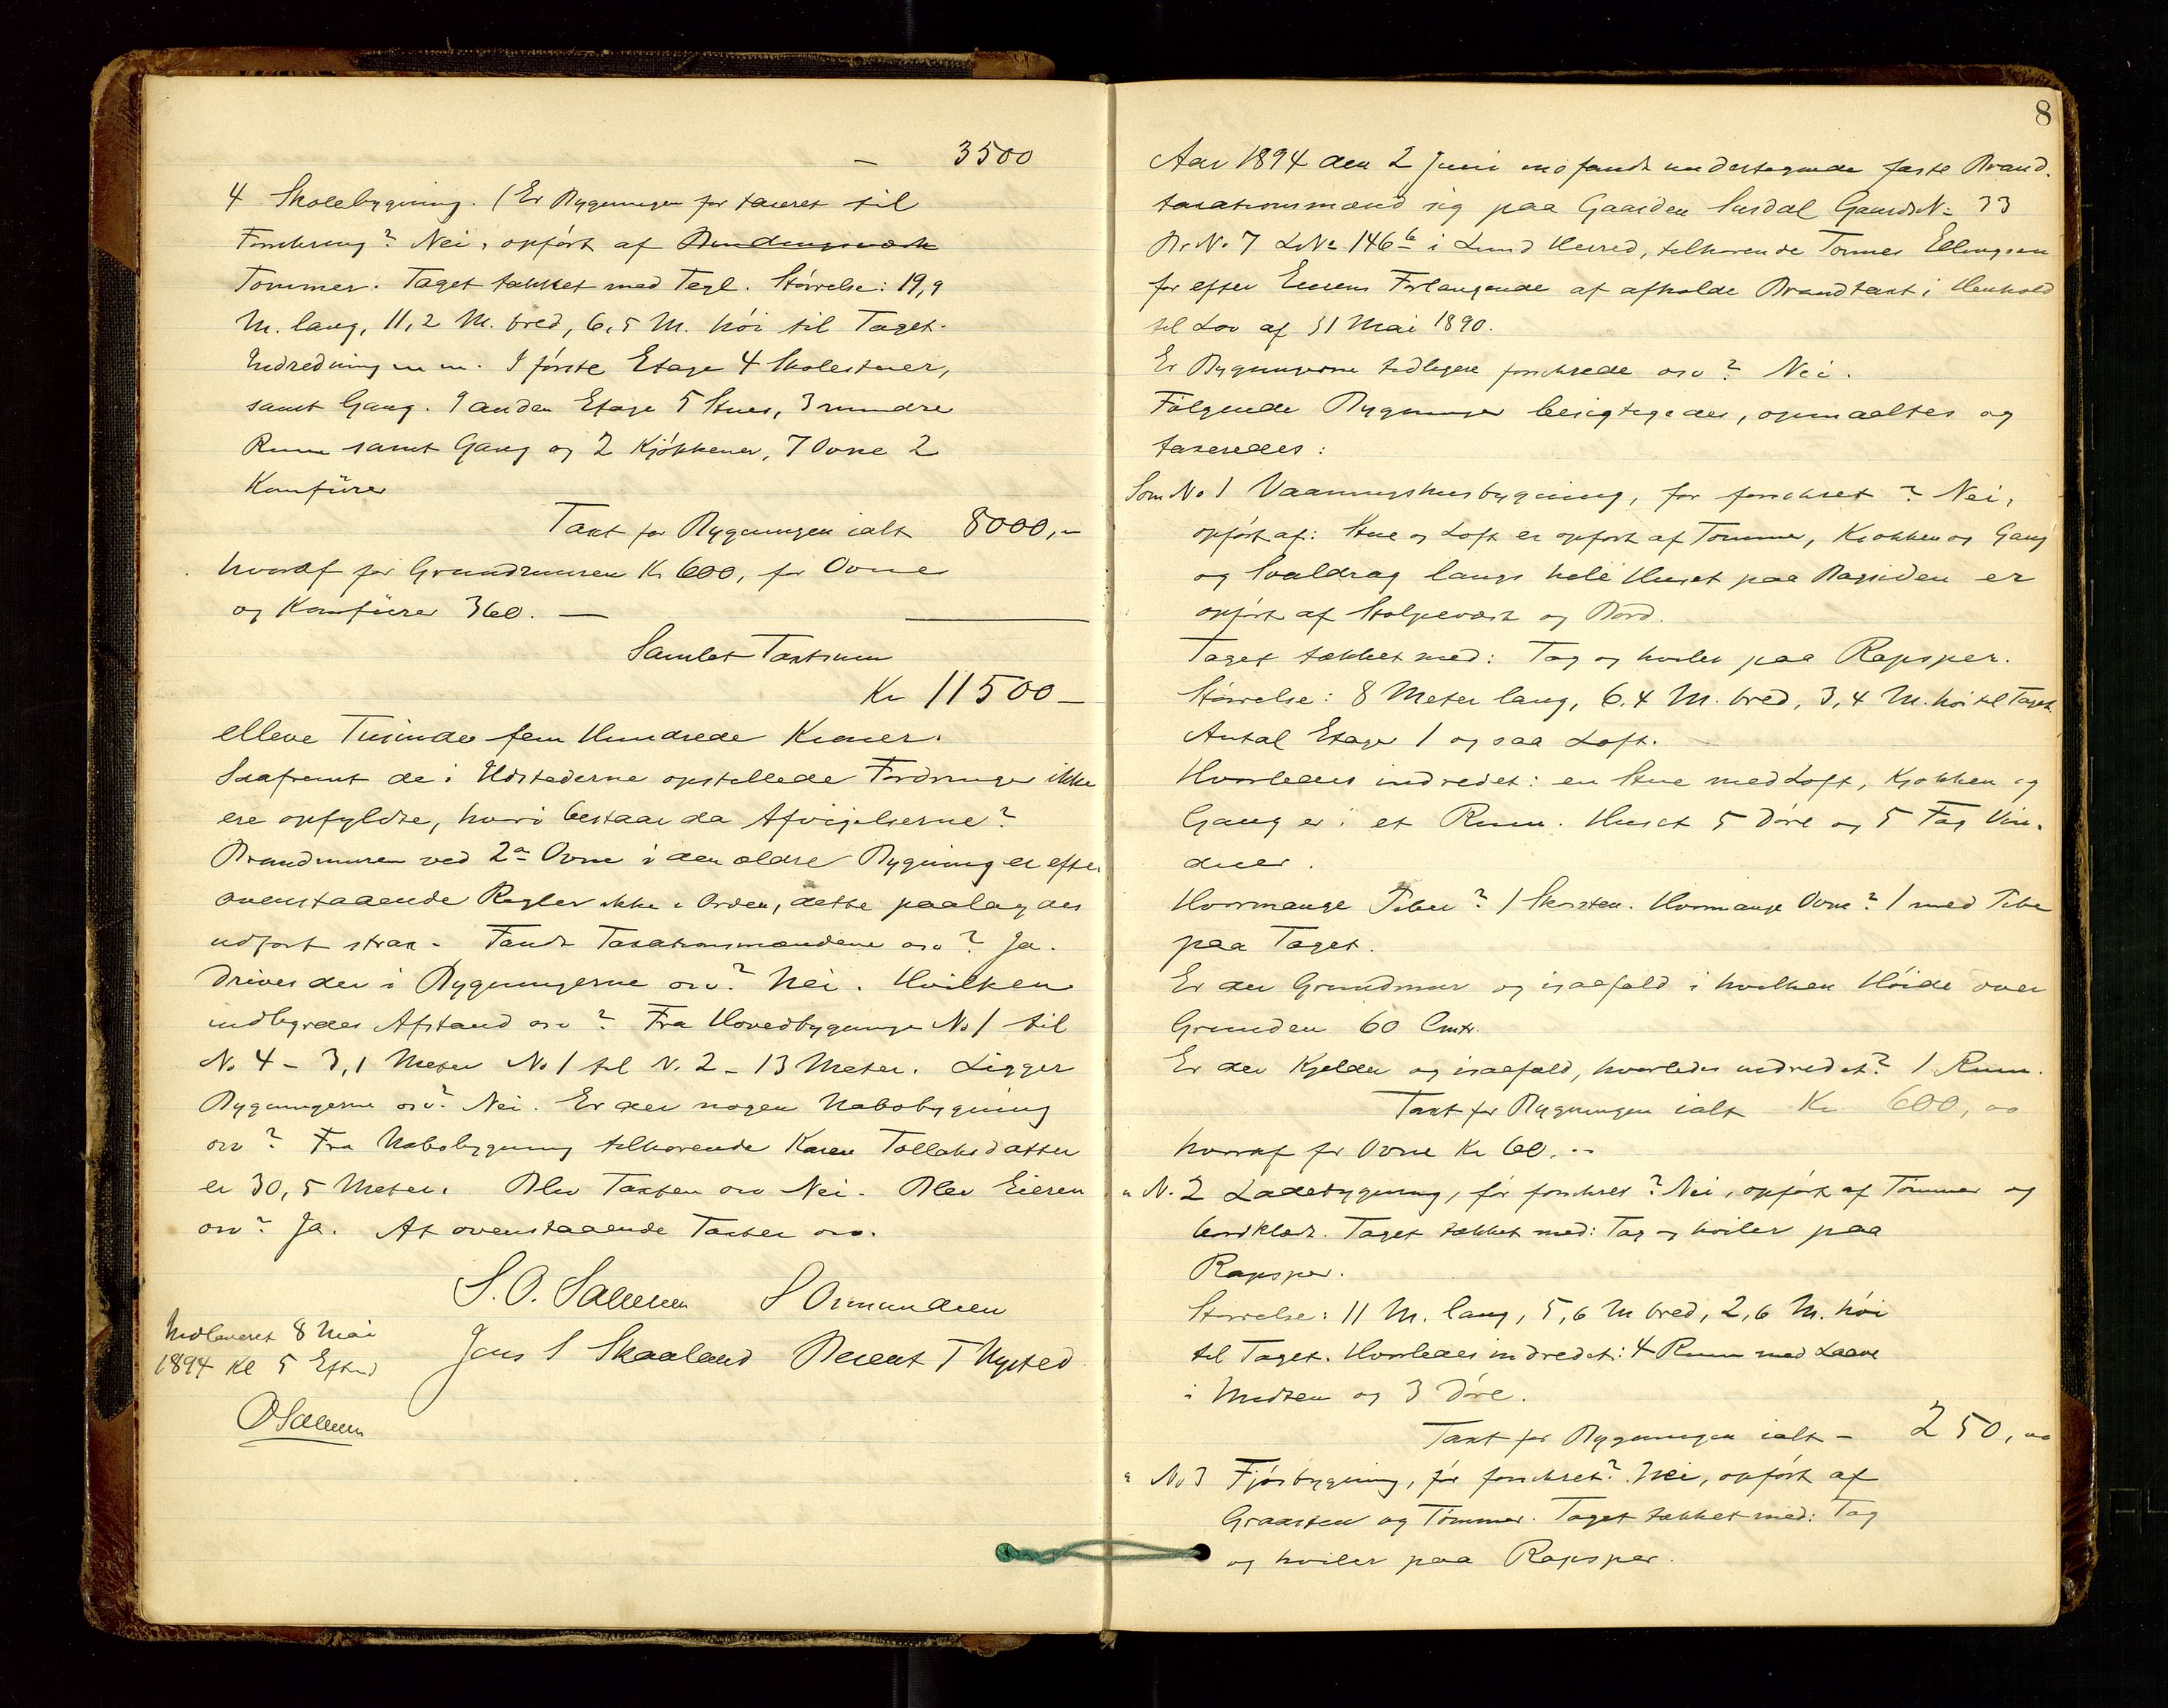 – 3500
4 Skolebygning. (Er Bygningen før taxeret til
Forsikring? Nei, opført af Bindingsværk
Tømmer. Taget tækket med Tegl. Størrelse: 19,9
M. lang, 11,2 M. bred, 6,5 M. høi til Taget.
Indredning m m. I første Etage 4 Skolestuer,
samt Gang. I anden Etage 5 Stuer, 3 mindre
Rum samt Gang og 2 Kjøkkener, 7 Ovne 2
Komfürer
Taxt for Bygningen ialt 8000,–
hvoraf for Grundmuren Kr 600, for Ovne
og Komfürer 360. —
Samlet Taxtsum
Kr 11500–
elleve Tusinde fem Hundrede Kroner.
Saafremt de i Udstederne opstillede Fordringer ikke
ere opfyldte, hvori bestaar da Afvigelserne?
Brandmuren ved 2de Ovne i den ældre Bygning er efter
ovenstaaende Regler ikke i Orden, dette paalagdes
udført strax. Fandt Taxationsmændene osv? Ja.
Drives der i Bygningerne osv? Nei. Hvilken
indbyrdes Afstand osv? Fra Hovedbygninge No 1 til
No 4 – 3,1 Meter No 1 til N. 2 – 13 Meter. Ligger
Bygningerne osv? Nei. Er der nogen Nabobygning
osv? Fra Nabobygning tilhørende Karen Tollaksdatter
er 30,5 Meter. Blev Taxten osv Nei. Blev Eieren
osv? Ja. At ovenstaaende Taxter osv.
S. O. Salvesen S Osmundsen
Jens S Skaaland Berent T Nysted
Indleveret 8 Mai
1894 Kl 5 Eftmd
O Salvesen
8
Aar 1894 den 2 Juni indfandt undertegnede faste Brand-
taxationsmænd sig paa Gaarden Surdal GaardsN= 33
Br. No 7 LNo 146 b i Lund Herred, tilhørende Tønnes Ellingsen
for efter Eierens Forlangende at afholde Brandtaxt i Henhold
til Lov af 31 Mai 1890.
Er Bygningerne tidligere forsikrede osv? Nei.
Følgende Bygninger besigtigedes, opmaaltes og
taxeredes:
Som No 1 Vaaningshusbygning, før forsikret? Nei,
opført af: Stue og Loft er opført af Tømmer, Kjøkken og Gang
og Svaldrag langs hele Huset paa Bagsiden er
opført af Stolpeværk og Bord.
Taget tækket med: Tag og hviler paa Rapsper.
Størrelse: 8 Meter lang, 6,4 M. bred, 3,4 M. høi til Taget
Antal Etager 1 og saa Loft.
Hvorledes indredet: en Stue med Loft, Kjøkken og
Gang er i et Rum. Huset 5 Døre og 5 Fag Vin-
duer.
Hvormange Piber? 1 Skorsten. Hvormange Ovne? 1 med Pibe
paa Taget.
Er der Grundmur og isaafald i hvilken Høide over
Grunden 60 Cmtr.
Er der Kjelder og isaafald, hvorledes indredet? 1 Rum.
Taxt for Bygningen ialt Kr 600,00
hvoraf for Ovne Kr 60.–
" N. 2 Ladebygning, før forsikret? Nei, opført af Tømmer og
bordklædt. Taget tækket med: Tag og hviler paa
Rapsper.
Størrelse: 11 M. lang, 5,6 M bred, 2,6 M. høi
til Taget. Hvorledes indredet: 4 Rum med Laave
i Midten og 3 Døre.
Taxt for Bygningen ialt – 250,00
" No 3 Fjøsbygning, før forsikret? Nei, opført af
Graasten og Tømmer. Taget tækket med: Tag
og hviler paa Rapsper.